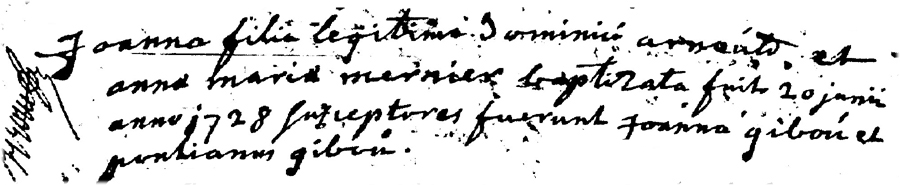 Joanna filia legitima Dominici arnould et
anna maria mernier baptizata fuit 20 junii
anno 1728 susceptores fuerunt Joanna gibou et
pontianus gibou.